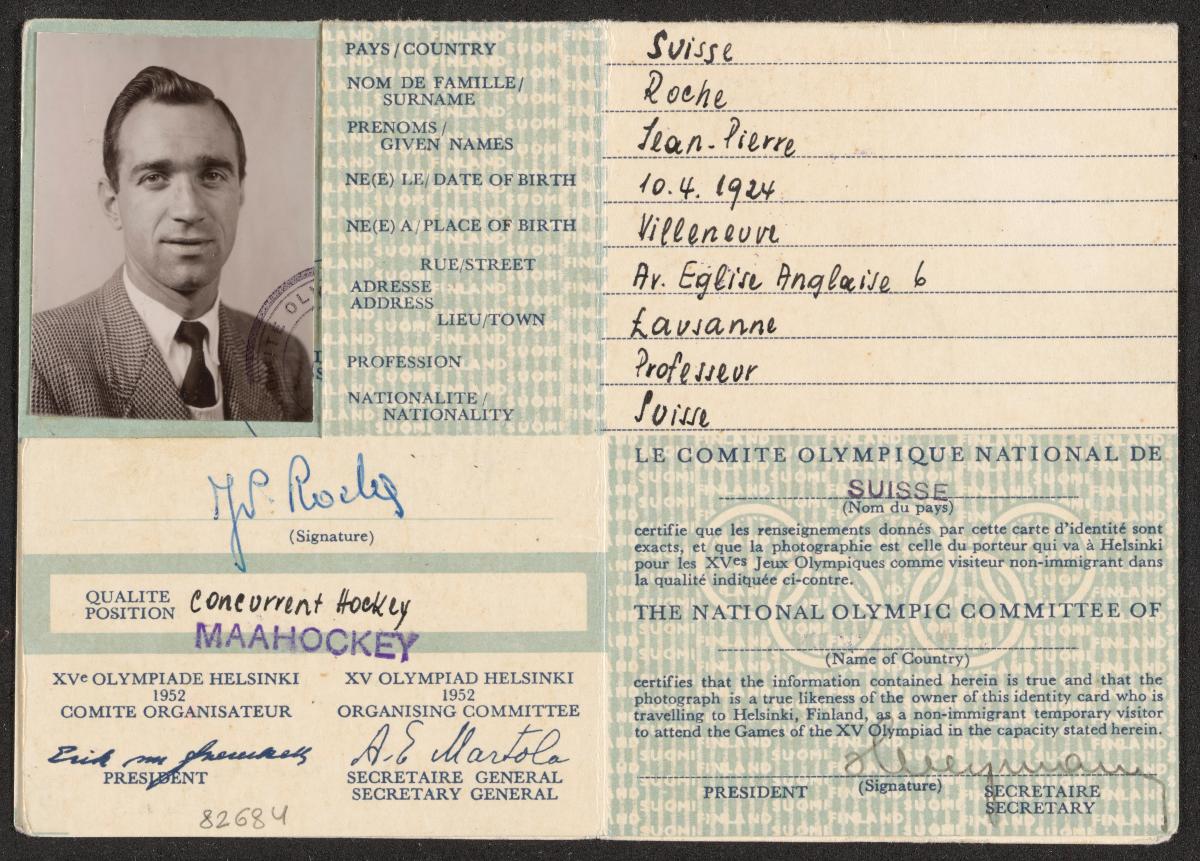 PAYS/COUNTRY
Suisse
NOM DE FAMILLE/
SURNAME
Roche
PRENOMS/
GIVEN NAMES
Jean-Pierre
NE(E) LE/DATE OF BIRTH
10.4.1924
NE(E) A/PLACE OF BIRTH
Villeneuve
RUE/STREET
Av. Eglise Anglaise 6
ADRESSE
ADDRESS
LIEU/TOWN
Lausanne
PROFESSION
Professeur
NATIONALITE/
NATIONALITY
Suisse
JP. Roche
(Signature)
QUALITE
POSITION
Concurrent Hockey
MAAHOCKEY
XVe OLYMPIADE HELSINKI
1952
COMITE ORGANISATEUR
PRESIDENT
XV OLYMPIAD HELSINKI
1952
ORGANISING COMMITTEE
A.E Martola
SECRETAIRE GENERAL
SECRETARY GENERAL
82684
LE COMITE OLYMPIQUE NATIONAL DE
SUISSE
(Nom du pays)
certifie que les renseignements donnés par cette carte d'identité sont
exacts, et que la photographie est celle du porteur qui va à Helsinki
pour les XVes Jeux Olympiques comme visiteur non-immigrant dans
la qualité indiquée ci-contre.
THE NATIONAL OLYMPIC COMMITTEE OF
(Name of Country)
certifies that the information contained herein is true and that the
photograph is a true likeness of the owner of this identity card who is
travelling to Helsinki, Finland, as a non-immigrant temporary visitor
to attend the Games of the XV Olympiad in the capacity stated herein.
PRESIDENT
(Signature)
SECRETAIRE
SECRETARY